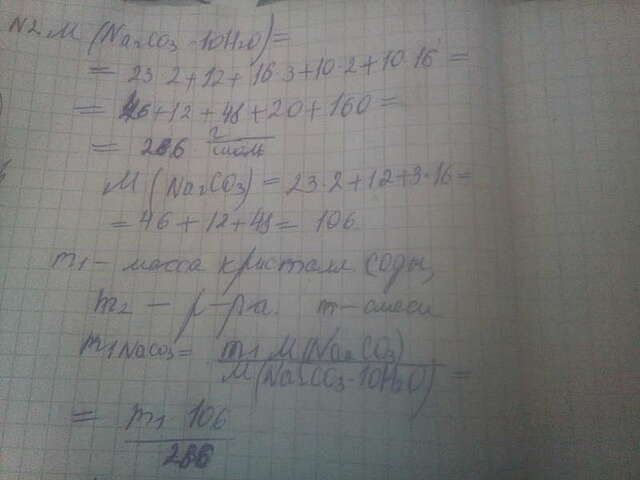 N2. M (Na2CO3 · 10H2O) =
= 23·2 + 12 + 16·3 + 10·2 + 10·16 =
= 46 + 12 + 48 + 20 + 160 =
= 286 г/моль
M (Na2CO3) = 23·2 + 12 + 3·16 =
= 46 + 12 + 48 = 106.
m1 – масса кристалл. соды,
m2 – р-ра. m – смеси
m1 NaCO3 = m1 M(Na2CO3) / M(Na2CO3·10H2O) =
= m1 · 106 / 286